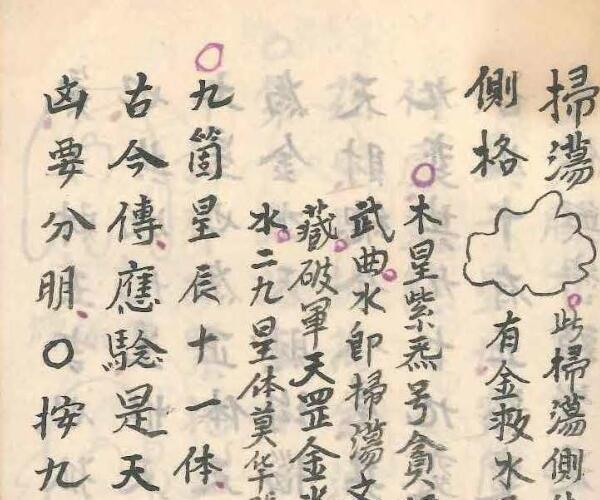 掃蕩
側格
此掃蕩側
有金救水
木星紫炁号貪
武曲水即掃蕩文
藏破軍天罡金水
水二九星体莫华
九箇星辰十一体
古今傳應驗是天
凶要分明〇按九